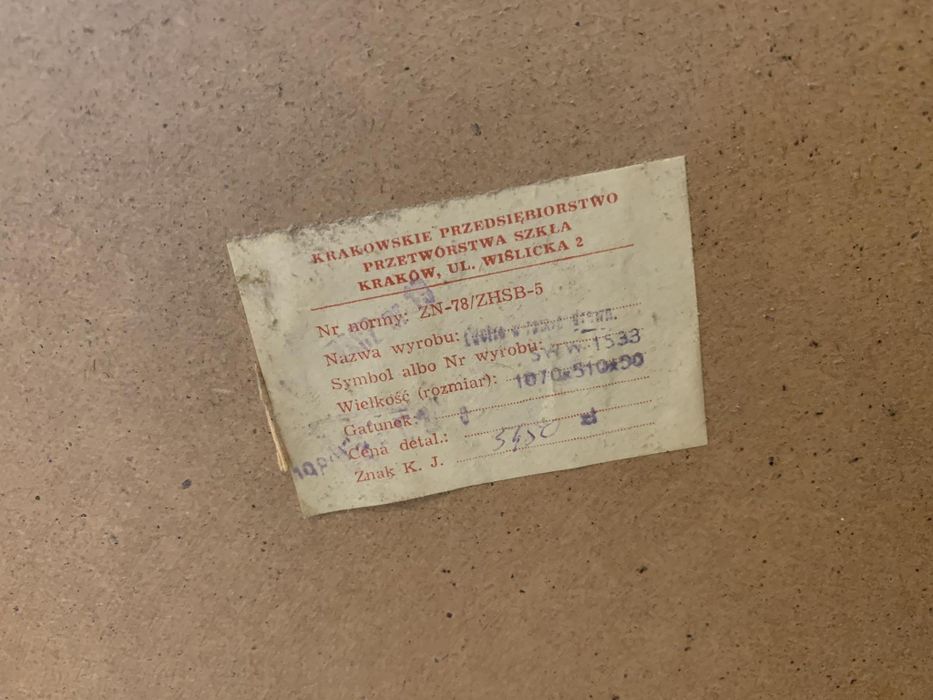 KRAKOWSKIE PRZEDSIĘBIORSTWO
PRZETWÓRSTWA SZKŁA
KRAKÓW, UL. WIŚLICKA 2
Nr normy: ZN-78/ZHSB-5
Nazwa wyrobu:
Symbol albo Nr wyrobu: SWW 1533
Wielkość (rozmiar): 1070x510x90
Gatunek:
Cena detal.: 5450 zł
Znak K. J.